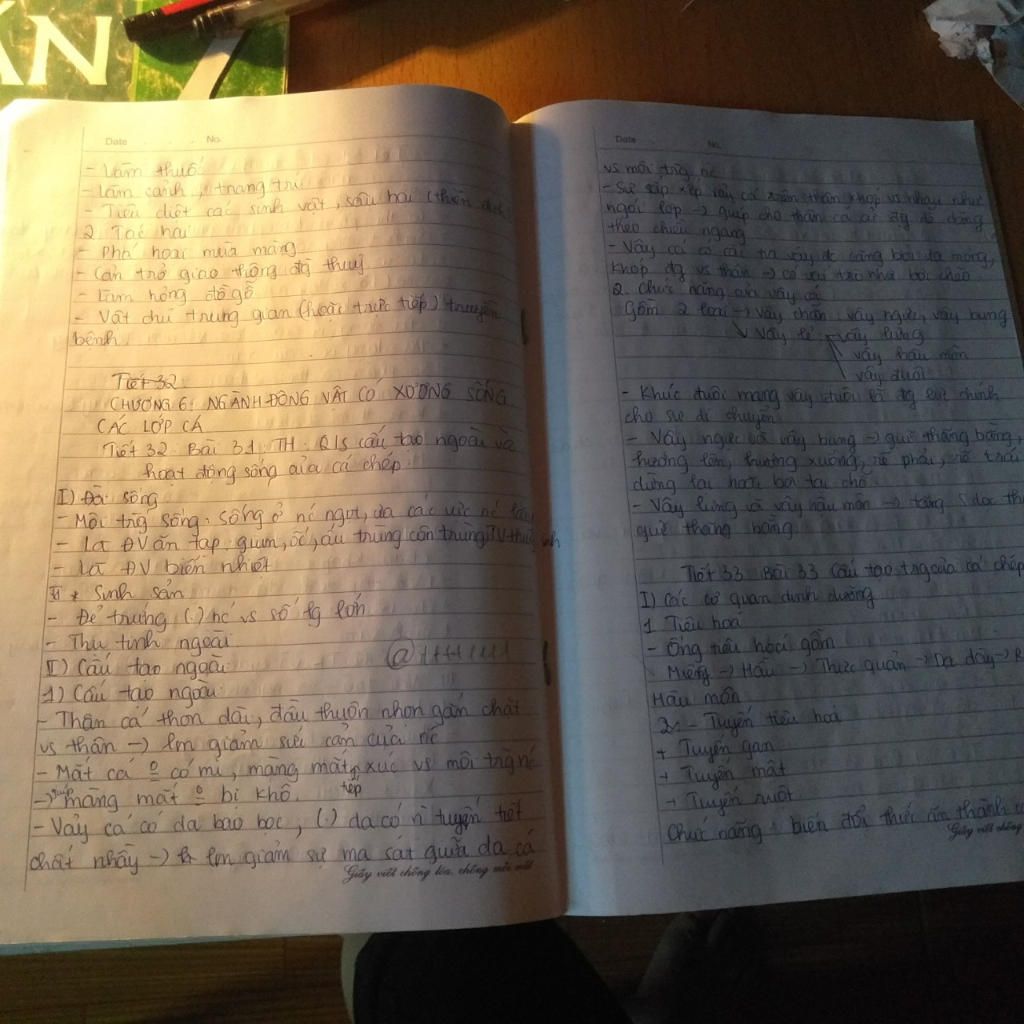 ÁN 7
Date No.
- Làm thuốc
- Làm cảnh, trang trí
- Tiêu diệt các sinh vật, sâu hại (thiên địch
2. Tác hại
- Phá hoại mùa màng
- Cản trở giao thông đg thuỷ
- Làm hỏng đồ gỗ
- Vật chủ trung gian (hoặc trực tiếp) truyền
bệnh.
Tiết 32
CHƯƠNG 6: NGÀNH ĐỘNG VẬT CÓ XƯƠNG SỐNG
CÁC LỚP CÁ
Tiết 32 Bài 31: TH: Q/S cấu tạo ngoài và
hoạt động sống của cá chép.
I) Đời sống
- Môi trg sống: sống ở nc ngọt,
- Là ĐV ăn tạp: giun, ốc, ấu trùng côn trùng, TV thuỷ sinh
- Là ĐV biến nhiệt
* Sinh sản
- Đẻ trứng (.) nc vs số lg lớn
- Thụ tinh ngoài
II) Cấu tạo ngoài
1) Cấu tạo ngoài
- Thân cá thon dài, đầu thuôn nhọn gắn chặt
vs thân -> lm giảm sức cản của nc
- Mắt cá o có mi, màng mắt tiếp xúc vs môi trg nc
-> giúp màng mắt o bị khô.
- Vảy cá có da bao bọc, (.) da có n tuyến tiết
chất nhầy -> lm giảm sự ma sát giữa da cá
Giấy viết chống lóa, chống mỏi mắt
Date No.
vs môi trg nc
- Sự sắp xếp vảy cá trên thân khớp vs nhau như
ngói lợp -> giúp cho thân cá cử đg dễ dàng
theo chiều ngang
- Vây cá có các tia vây đc căng bởi da mỏng,
khớp đg vs thân -> có vai trò như bơi chèo
2. Chức năng của vây cá
Gồm 2 loại -> Vây chẵn: vây ngực, vây bụng
Vây lẻ: vây lưng
vây hậu môn
vây đuôi
- Khúc đuôi mang vây đuôi là đg lực chính
cho sự di chuyển
- Vây ngực và vây bụng -> giữ thăng bằng,
hướng lên, hướng xuống, rẽ phải, rẽ trái
dừng lại hoặc bơi tại chỗ
- Vây lưng và vây hậu môn -> tăng S dọc th
giữ thăng bằng
Tiết 33 Bài 33 Cấu tạo trg của cá chép
I) Các cơ quan dinh dưỡng
1 Tiêu hoá
- Ống tiêu hoá gồm
Miệng -> Hầu -> Thực quản -> Dạ dày -> R
Hậu môn
2 - Tuyến tiêu hoá
+ Tuyến gan
+ Tuyến mật
+ Tuyến ruột
Chức năng: biến đổi thức ăn thành
Giấy viết chống